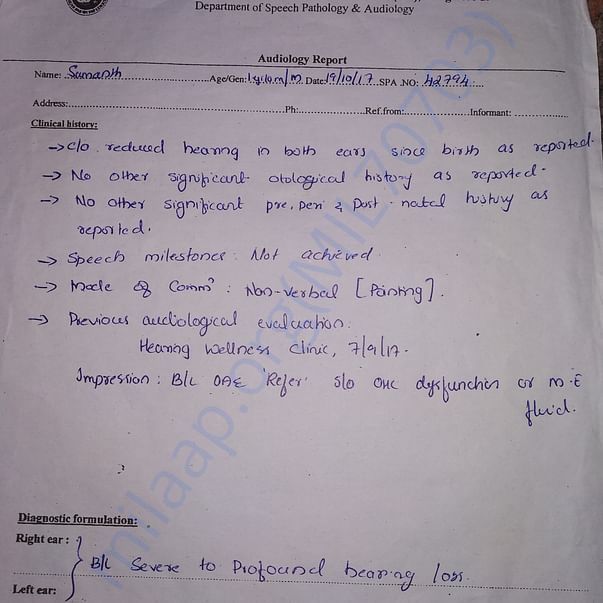 Department of Speech Pathology & Audiology
Audiology Report
Name: Sumanth Age/Gen: 1yr10m/m Date: 19/10/17 SPA .NO: 42794
Address: Ph: Ref.from: Informant:
Clinical history:
→ c/o reduced hearing in both ears since birth as reported.
→ No other significant otological history as reported.
→ No other significant pre, peri & post-natal history as
reported.
→ Speech milestones: Not achieved.
→ Mode of Commn: Non-verbal [Pointing].
→ Previous audiological evaluation.
Hearing Wellness Clinic, 7/9/17.
Impression: B/L OAE 'Refer' s/o OHC dysfunction or M.E
fluid.
Diagnostic formulation:
Right ear :
B/L Severe to Profound hearing loss.
Left ear:
milaap.org(MIL70703)